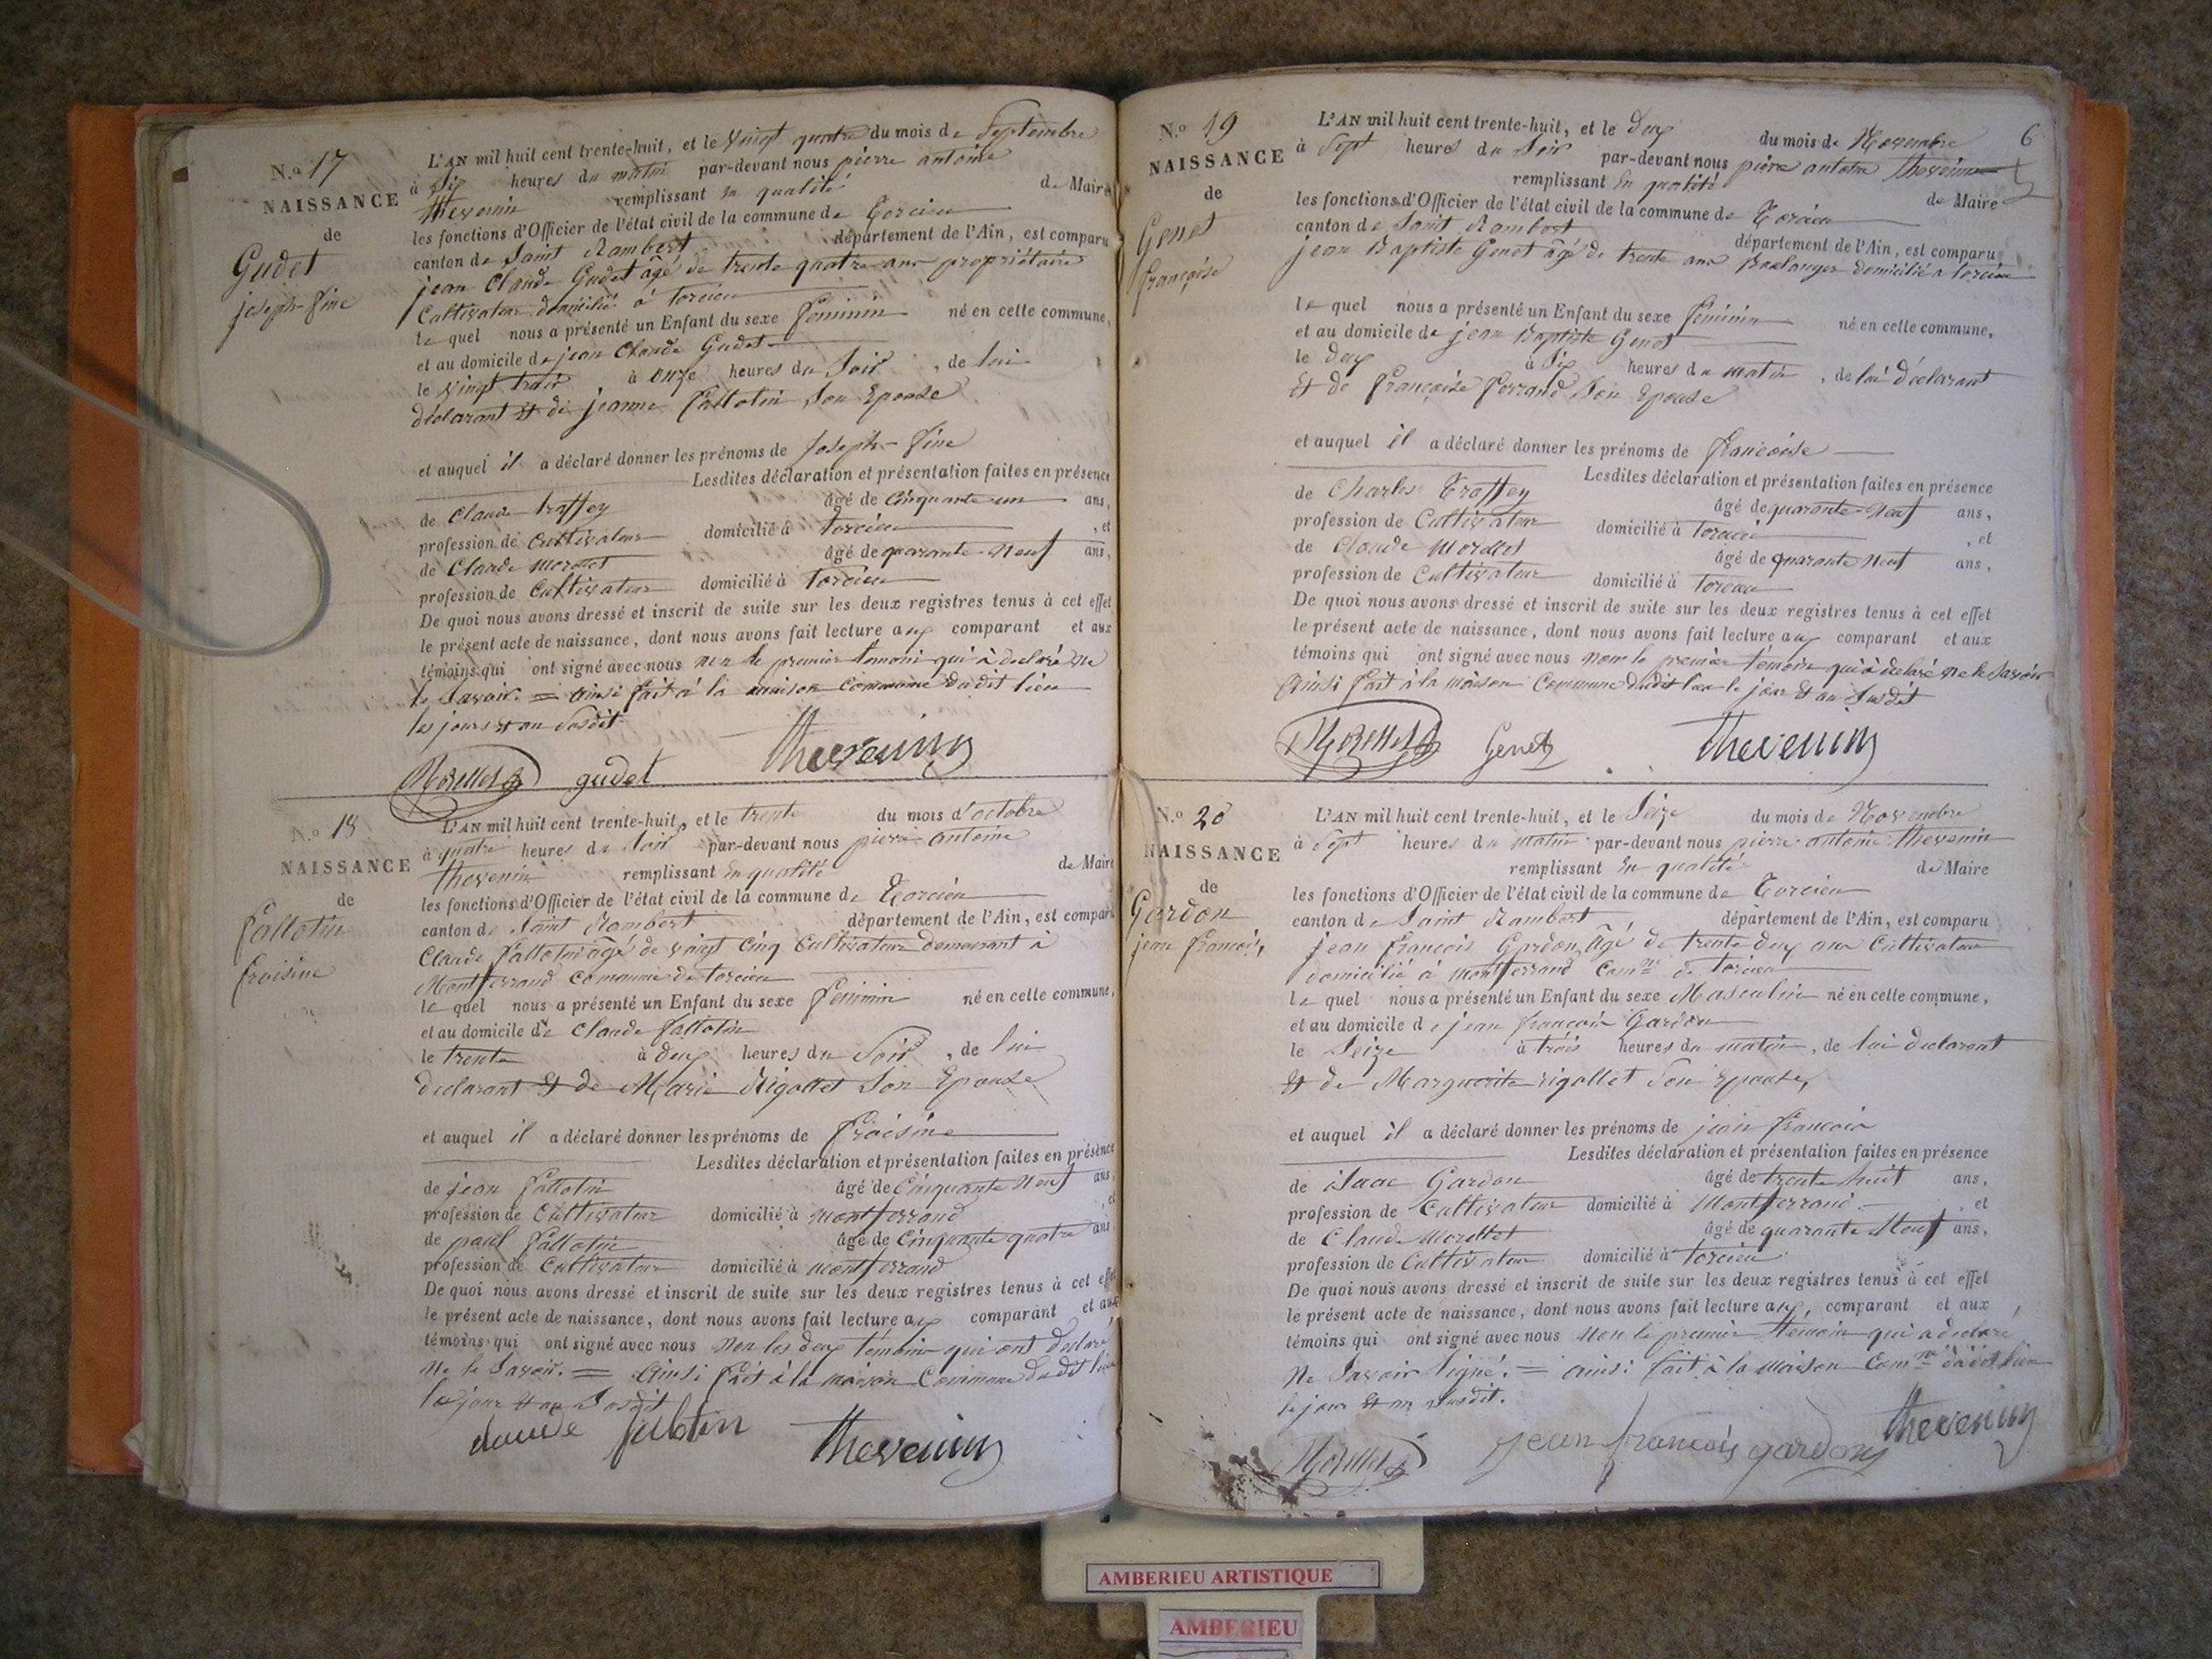 N.o 17
NAISSANCE
de
Gudet
joseph-fine
L'AN mil huit cent trente-huit, et le vingt quatre du mois de Septembre
à Six heures du matin par-devant nous pierre antoine
thevenin remplissant en qualité de Maire
les fonctions d'Officier de l'état civil de la commune de Torcieu
canton de Saint Rambert département de l'Ain, est comparu
jean Claude Gudet âgé de trente quatre ans propriétaire
Cultivateur domicilié à torcieu
le quel nous a présenté un Enfant du sexe féminin né en cette commune,
et au domicile de jean Claude Gudet
le vingt trois à onze heures du Soir, de lui
déclarant et de jeanne fallotin Son Epouse
et auquel il a déclaré donner les prénoms de Joseph-fine
Lesdites déclaration et présentation faites en présence
de Claude traffey âgé de Cinquante un ans,
profession de Cultivateur domicilié à torcieu, et
de Claude morellet âgé de quarante-neuf ans,
profession de Cultivateur domicilié à torcieu
De quoi nous avons dressé et inscrit de suite sur les deux registres tenus à cet effet
le présent acte de naissance, dont nous avons fait lecture aux comparant et aux
témoins qui ont signé avec nous non le premier temoin qui à declaré ne
le Savoir. = ainsi fait à la maison Commune dudit lieu
les jours et an Susdit
Morellet gudet thevenin
N.o 18
NAISSANCE
de
fallotin
froisine
L'AN mil huit cent trente-huit, et le trente du mois d'octobre
à quatre heures du Soir par-devant nous pierre antoine
thevenin remplissant en qualité de Maire
les fonctions d'Officier de l'état civil de la commune de Torcieu
canton de Saint Rambert département de l'Ain, est comparu
Claude fallotin âgé de vingt Cinq Cultivateur demeurant à
Montferrand Commune de torcieu
le quel nous a présenté un Enfant du sexe féminin né en cette commune,
et au domicile de Claude fallotin
le trente à deux heures du Soir, de lui
declarant et de Marie Rigollet Son Epouse
et auquel il a déclaré donner les prénoms de froisine
Lesdites déclaration et présentation faites en présence
de jean fallotin âgé de Cinquante neuf ans,
profession de Cultivateur domicilié à montferrand et
de paul fallotin âgé de Cinquante quatre ans
profession de Cultivateur domicilié à montferrand
De quoi nous avons dressé et inscrit de suite sur les deux registres tenus à cet effet
le présent acte de naissance, dont nous avons fait lecture aux comparant et aux
témoins qui ont signé avec nous non les deux témoins qui ont declaré
ne le Savoir. = ainsi fait à la maison Commune dudit lieu
les jour et an Susdit
claude falotin thevenin
6
N.o 19
NAISSANCE
de
Genet
françoise
L'AN mil huit cent trente-huit, et le deux du mois de Novembre
à Sept heures du Soir par-devant nous pierre antoine thevenin
remplissant en qualité de Maire
les fonctions d'Officier de l'état civil de la commune de Torcieu
canton de Saint Rambert département de l'Ain, est comparu
jean Baptiste Genet âgé de trente ans Boulanger domicilié à torcieu
le quel nous a présenté un Enfant du sexe féminin né en cette commune,
et au domicile de jean Baptiste Genet
le deux à Six heures du matin, de lui déclarant
et de françoise ferrand Son Epouse
et auquel il a déclaré donner les prénoms de françoise
Lesdites déclaration et présentation faites en présence
de Charles Traffey âgé de quarante-neuf ans,
profession de Cultivateur domicilié à torcieu, et
de Claude Morellet âgé de quarante neuf ans,
profession de Cultivateur domicilié à torcieu
De quoi nous avons dressé et inscrit de suite sur les deux registres tenus à cet effet
le présent acte de naissance, dont nous avons fait lecture aux comparant et aux
témoins qui ont signé avec nous non le premier témoin qui à declaré ne le Savoir
ainsi fait à la maison Commune dudit lieu le jour et an Susdit
Morellet Genet thevenin
N.o 20
NAISSANCE
de
Gardon
jean françois
L'AN mil huit cent trente-huit, et le Seize du mois de Novembre
à Sept heures du matin par-devant nous pierre antoine thevenin
remplissant en qualité de Maire
les fonctions d'Officier de l'état civil de la commune de Torcieu
canton de Saint Rambert, département de l'Ain, est comparu
jean françois Gardon, âgé de trente deux ans Cultivateur
domicilié à montferrand Com.ne de torcieu
le quel nous a présenté un Enfant du sexe Masculin né en cette commune,
et au domicile de jean françois Gardon
le Seize à trois heures du matin, de lui declarant
et de Marguerite rigollet Son Epouse,
et auquel il a déclaré donner les prénoms de jean françois
Lesdites déclaration et présentation faites en présence
de isaac Gardon âgé de trente huit ans,
profession de Cultivateur domicilié à Montferrand, et
de Claude Morellet âgé de quarante neuf ans,
profession de Cultivateur domicilié à torcieu
De quoi nous avons dressé et inscrit de suite sur les deux registres tenus à cet effet
le présent acte de naissance, dont nous avons fait lecture aux, comparant et aux
témoins qui ont signé avec nous non le premier temoin qui a declaré
ne Savoir Signé. = ainsi fait à la maison Com.ne dudit lieu
le jour et an Susdit.
Morellet jean françois gardon thevenin
AMBERIEU ARTISTIQUE
AMBERIEU